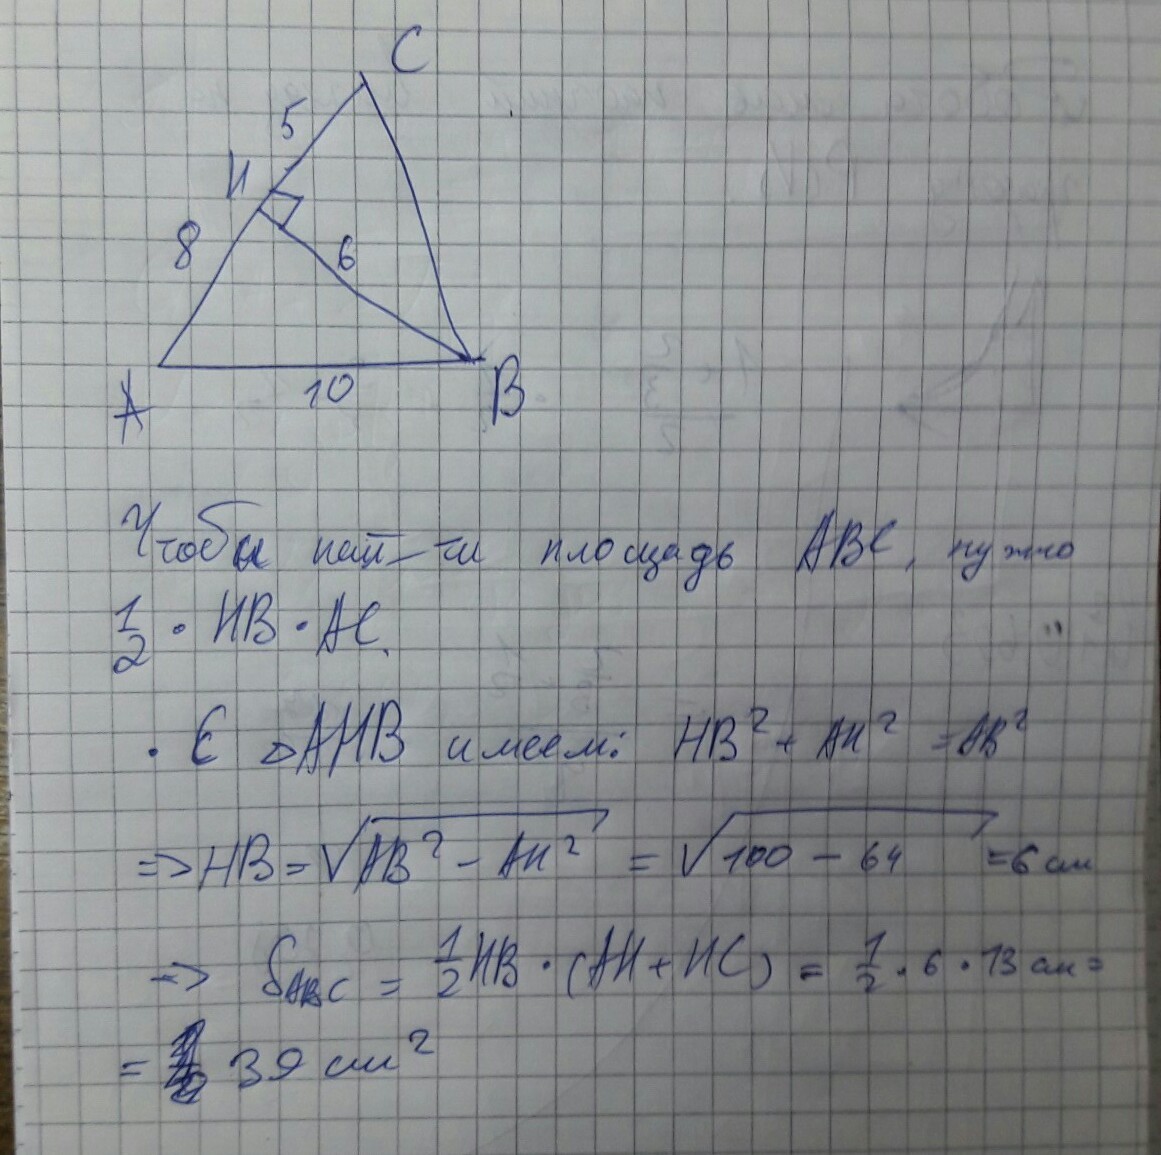 C
5
H
8
6
A
10
B
Чтобы найти площадь ABC, нужно
1/2 · HB · AC.
· С △AHB имеем: HB² + AH² = AB²
=> HB = √(AB² - AH²) = √(100 - 64) = 6 см
=> S_ABC = 1/2 HB · (AH + HC) = 1/2 · 6 · 13 см =
= 39 см²